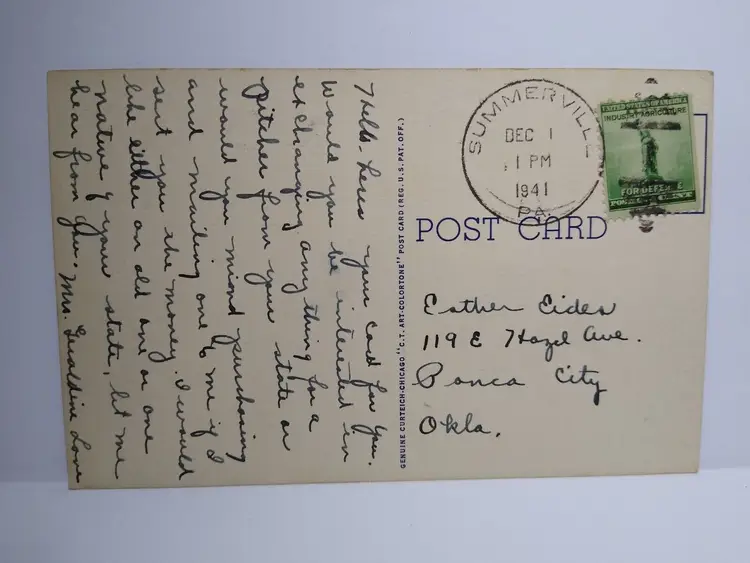 Hello- Heres your card for you.
Would you be interested in
exchanging anything for a
pitcher from your state or
would you miond purchasing
and mailing one to me if I
sent you the money. I would
like either an old one or one
native of your state, let me
hear from you. Mrs. Geraldine Love
GENUINE CURTEICH-CHICAGO "C.T. ART-COLORTONE" POST CARD (REG. U.S. PAT. OFF.)
SUMMERVILLE
DEC 1
1 PM
1941
PA.
UNITED STATES OF AMERICA
INDUSTRY AGRICULTURE
FOR DEFENSE
POSTAGE 1 CENT
POST CARD
Esther Eides
119 E Hazel Ave.
Ponca City
Okla.